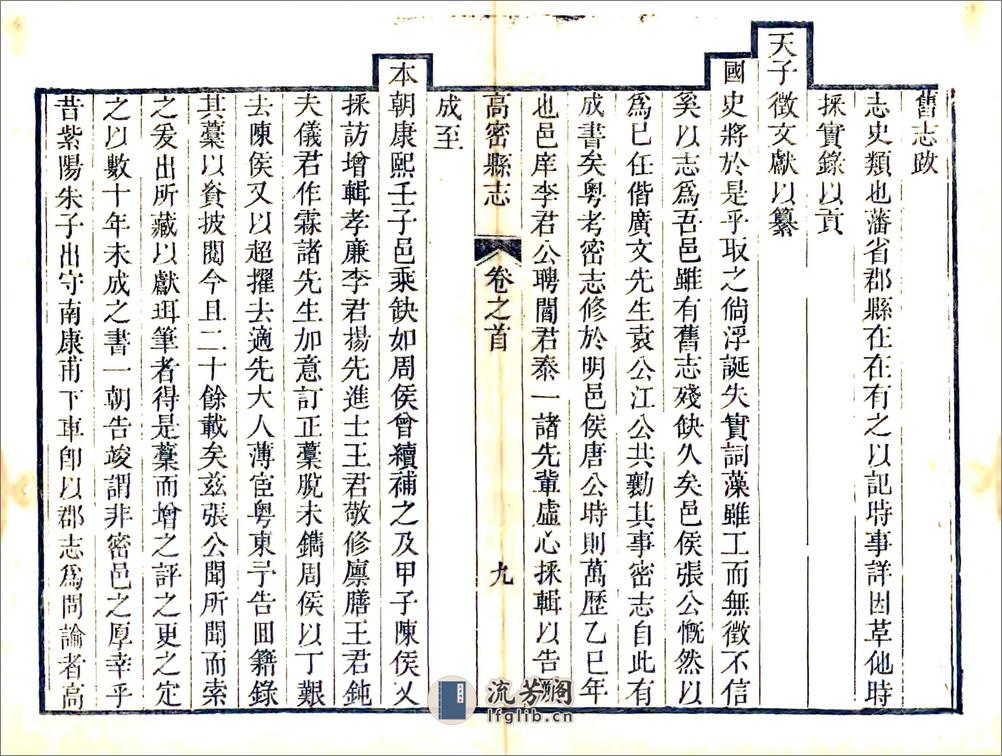 舊志跋
志史類也藩省郡縣在在有之以記時事詳因革他時
採實錄以貢
天子徵文獻以纂
國史將於是乎取之倘浮誕失實詞藻雖工而無徵不信
奚以志爲吾邑雖有舊志殘缺久矣邑侯張公慨然以
爲已任偕廣文先生袁公江公共勷其事密志自此有
成書矣粤考密志修於明邑侯唐公時則萬歷乙巳年
也邑庠李君公聘閻君泰一諸先輩虛心採輯以告
高密縣志 卷之首 九
成至
本朝康熙壬子邑乘缺如周侯曾續補之及甲子陳侯乂
採訪增輯孝廉李君揚先進士王君敬修廪膳王君鈍
夫儀君作霖諸先生加意訂正藁脫未鐫周侯以丁艱
去陳侯又以超擢去適先大人薄宦粤東予告囬籍錄
其藁以資披閱今且二十餘載矣兹張公聞所聞而索
之爰出所藏以獻珥筆者得是藁而增之評之更之定
之以數十年未成之書一朝告竣謂非密邑之厚幸乎
昔紫陽朱子出守南康甫下車卽以郡志爲問論者高
流芳阁
lfglib.cn